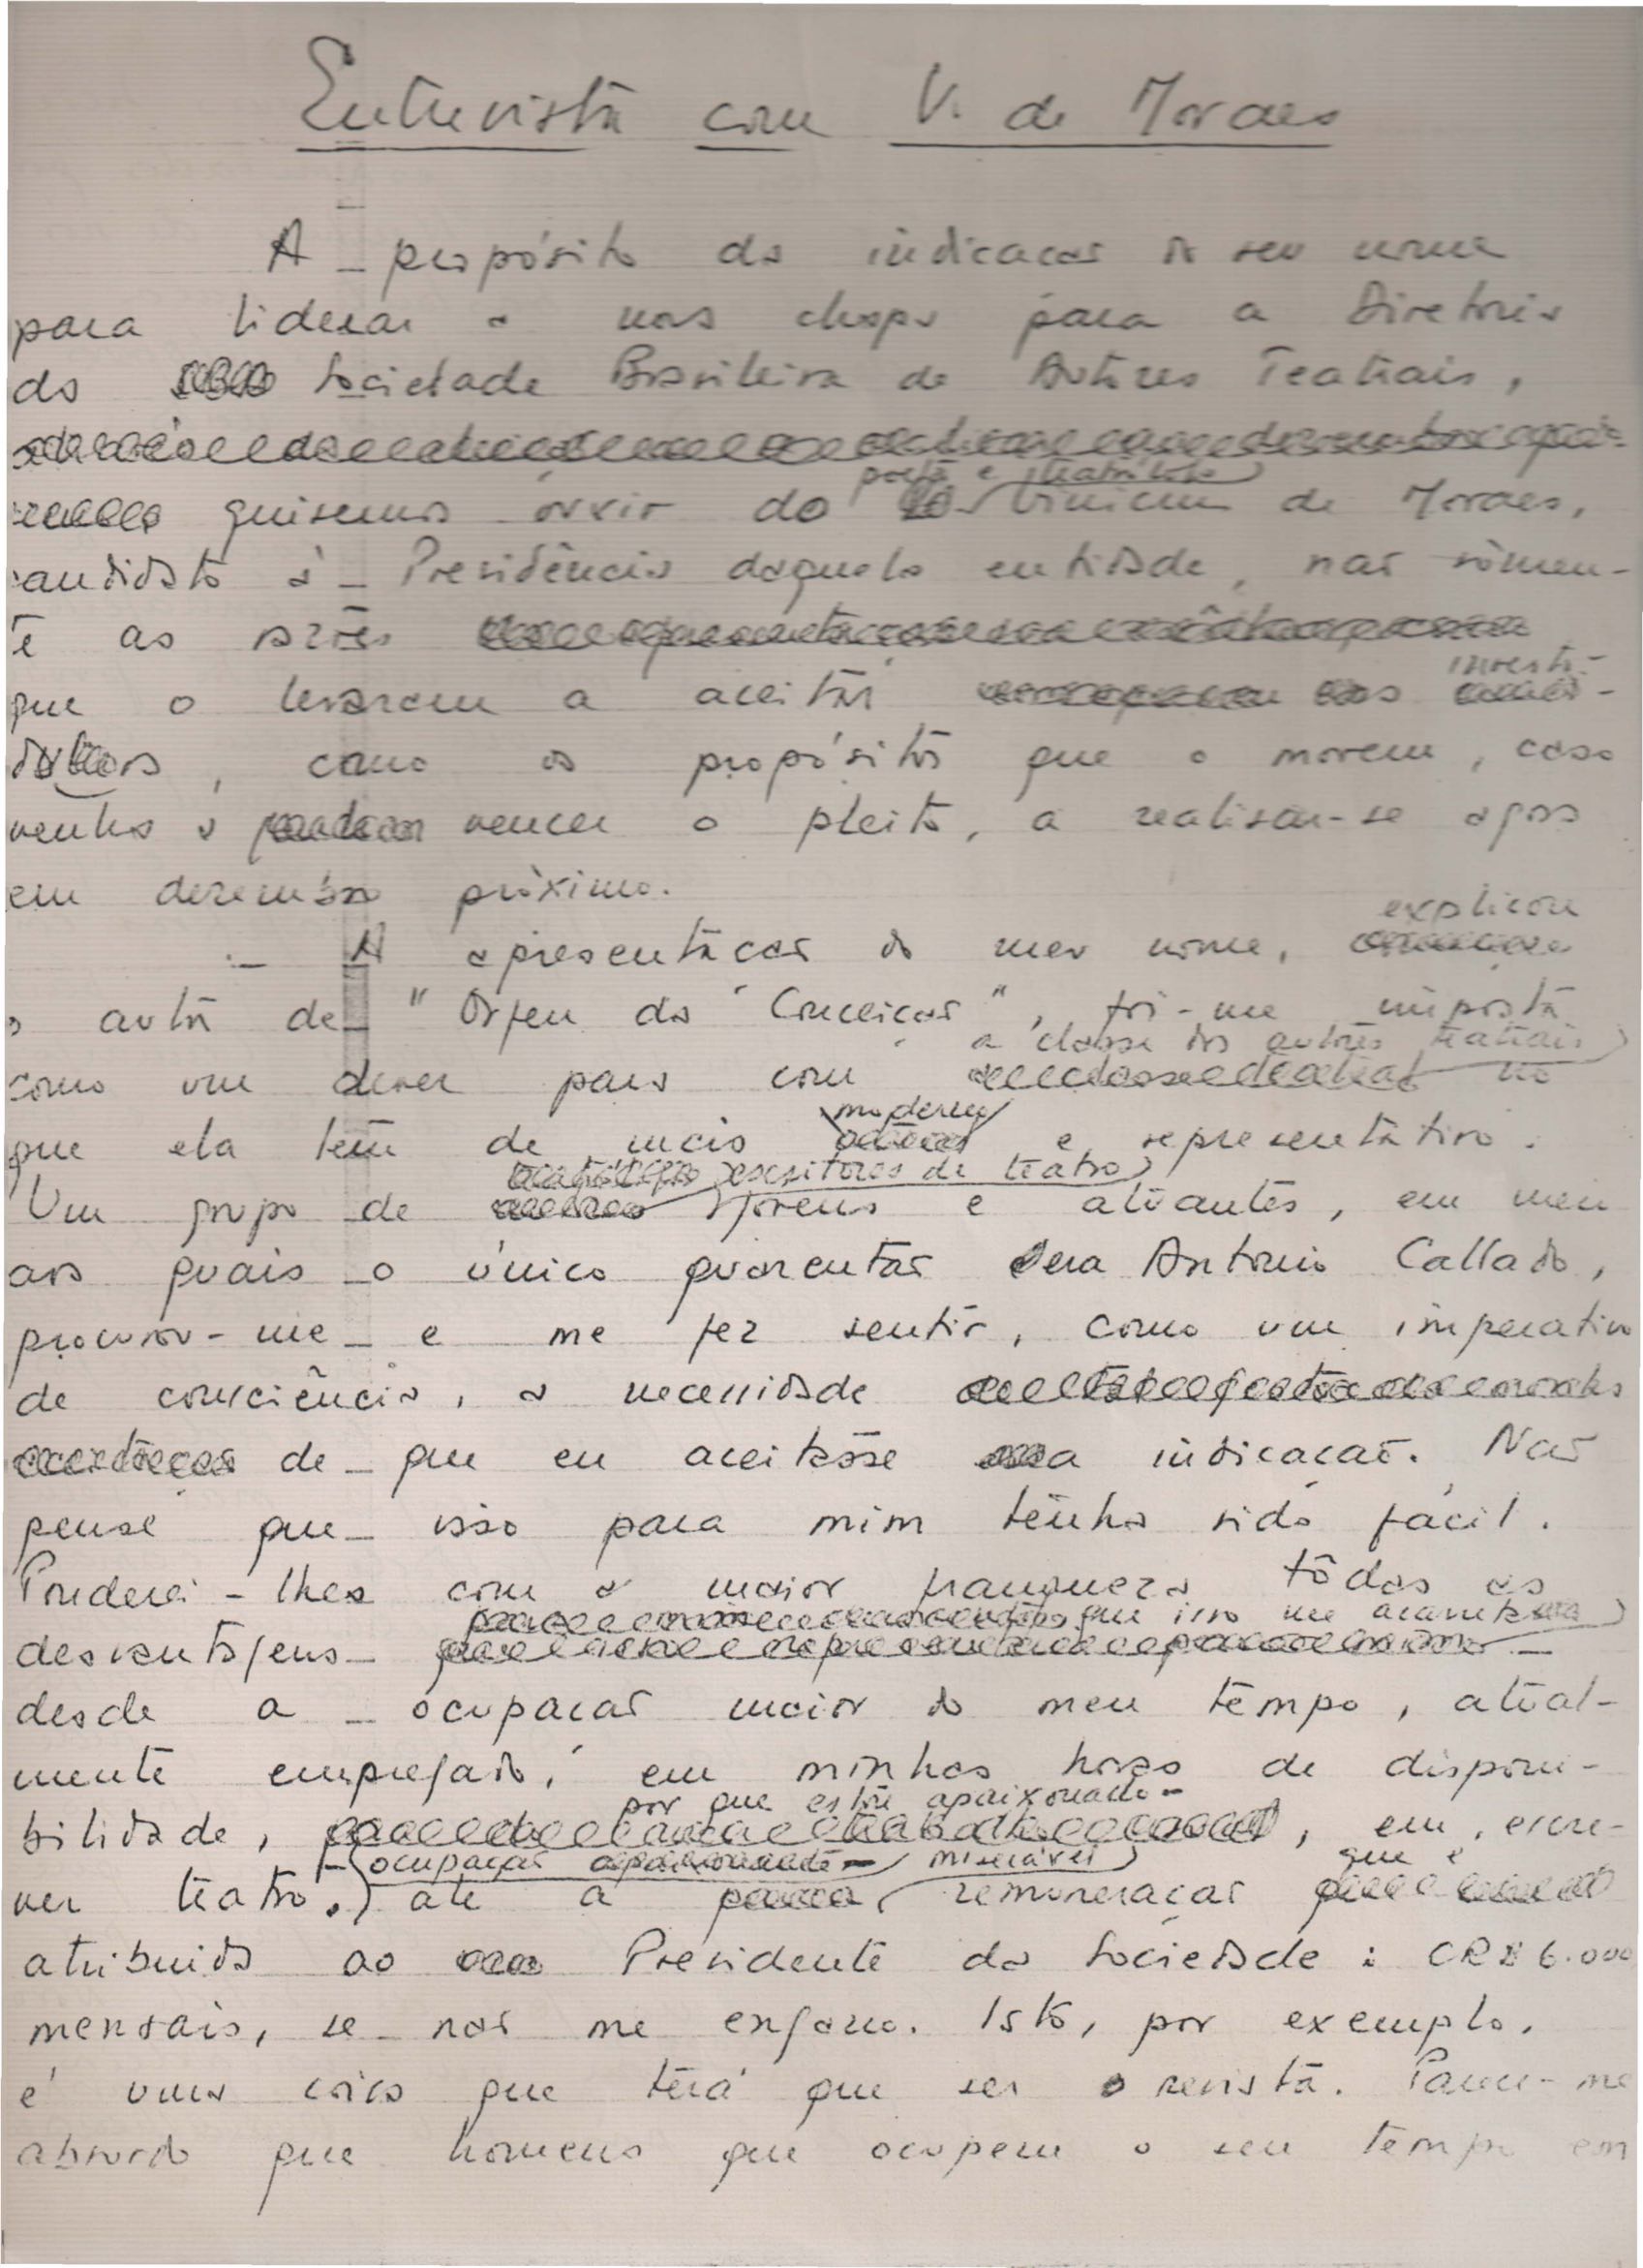 Entrevista com V. de Moraes
A propósito da indicação de seu nome
para liderar a nova chapa para a Diretoria
da Sociedade Brasileira de Autores Teatrais,
poeta e teatrólogo
quisemos ouvir do Vinicius de Moraes,
candidato à Presidência daquela entidade, não sòmen-
te as razões
investi-
que o levaram a aceitar
dura, como os propósitos que o movem, caso
venha a vencer o pleito, a realizar-se agora
em dezembro próximo.
explicou
— A apresentação do meu nome,
o autor de "Orfeu da Conceição", foi-me imposta
a classe dos autores teatrais
como um dever para com no
moderno
que ela tem de mais e representativo.
escritores de teatro
Um grupo de jovens e atuantes, em meio
aos quais o único quarentão era Antonio Callado,
procurou-me e me fez sentir, como um imperativo
de consciência, a necessidade
de que eu aceitasse a indicação. Não
pense que isso para mim tenha sido fácil.
Ponderei-lhes com a maior franqueza tôdas as
que isso me acarretaria
desvantagens —
desde a ocupação maior do meu tempo, atual-
mente empregado, em minhas horas de disponi-
por que estou apaixonado -
bilidade, , em escre-
ocupação miserável que é
ver teatro, até a remuneração
atribuida ao Presidente da Sociedade: CR$ 6.000
mensais, se não me engano. Isto, por exemplo,
é uma coisa que terá que ser revista. Parece-me
absurdo que homens que ocupem o seu tempo em